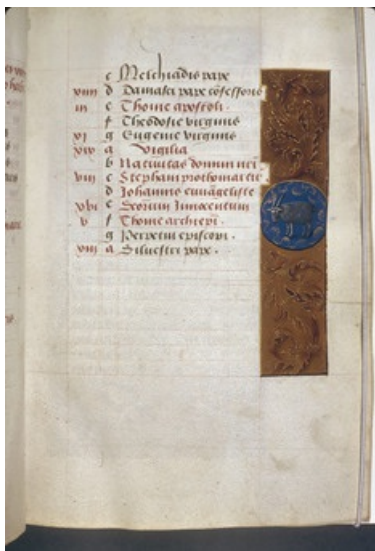 c Melchiadis pape
viiii d Damasci pape cōfessoris
iii e Thome apostoli.
f Theodosie virginis
vi g Eugenie virginis
xiiii a Vigilia
b Nativitas domini nr̄i
viii c Stephani prothomartiris
d Johannis euuāgeliste
xvi e Scōrum Innocentum
v f Thome archiepi.
g Perpetui episcopi.
viii a Siluestri pape.